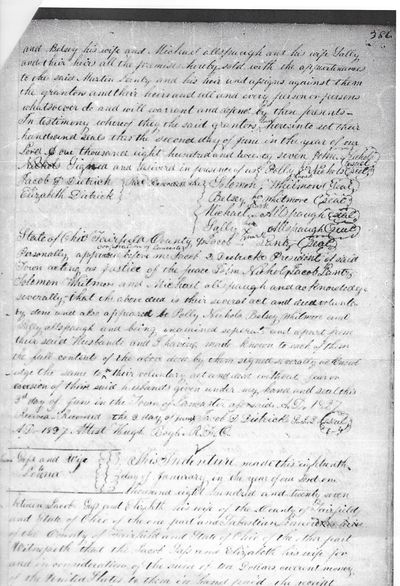 386
and Betsey his wife and Michael allspaugh and his wife Sally
and their heirs all the premises hereby sold with the appurtenances
to the said Martin Lantz and his heir and assigns against them
the grantors and their heirs and all and every person or persons
whatsoever do and will warrant and defend by these presents
In testimony whereof they the said grantors hereinto set their
hand and seals this the second day of June in the year of our
Lord one thousand eight hundred and twenty seven John Nichols
Signed and Delivered in presence of us Polly Nichols Seal
Jacob D Dietrich Solomon Whitmore Seal
Elizabeth Dietrich Betsey Whitmore Seal
Michael Allspaugh Seal
Sally Allspaugh Seal
State of Ohio Fairfield County Jacob Lantz Seal
Personally appeared before me Jacob D Dietrich President of said
Town acting as Justice of the peace John Nichols Jacob Lantz
Solomon Whitmore and Michael allspaugh and acknowledge
severally that the above deed is their several act and deed volunta
ry done and also appeared the Polly Nichols Betsey Whitmore and
Sally allspaugh and being examined seperate and apart from
their said Husbands and I having made known to each of them
the full content of the above deed by them signed severally
edge the same to their voluntary act and deed without fear or
coersion of their said husbands given under my hand and seal this
3d day of June in the Town of Lancaster aforesaid A.D. 1827
Received the 2 day of Jacob D Dietrich Seal
AD 1827 Attest Hugh Boyle R.F.C.
and Wife
This Indenture made this eighteenth
day of January in the year of our Lord one
thousand eight hundred and twenty seven
between Jacob and Elizabeth his wife of the County of Fairfield
and State of Ohio of the one part and Sebastian
of the County of Fairfield and State of Ohio of the other part
Witnesseth that the Jacob and Elizabeth his wife for
and in consideration of the sum of ten Dollars current money
of the United States to them in hand paid the receipt